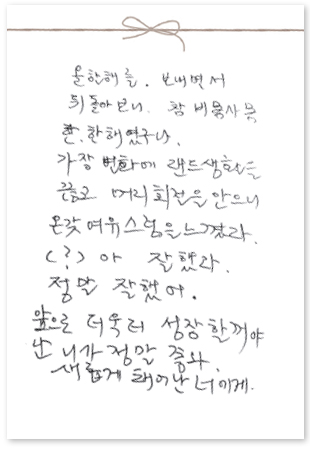 올한해를. 보내면서
뒤돌아보니. 참 비몽사몽
한. 한해였구나.
가장 변화에 랜드생활을
끌고 머리회전을 안으니
온갖여유스럼을느꼈라.
(?) 아 잘했라.
정말 잘했어.
앞으로 더욱더 성장할꺼야
난 니가 정말 좋와.
새롭게 태어난 너에게.